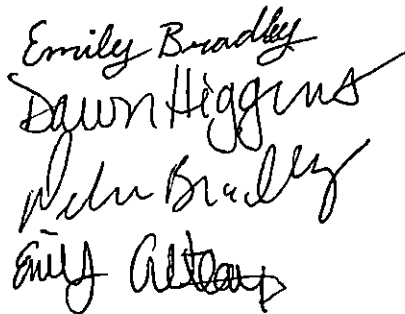 Emily Bradley
Dawn Higgins
Bradley
Emily